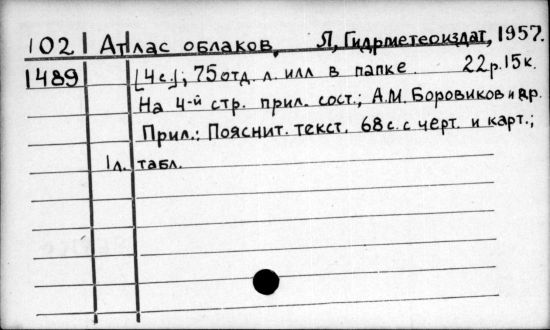 102 Атлас облаков, Л, Гидрметеоиздат, 1957.
1489 [4с.]; 75 отд. л. илл в папке. 22р.15к.
На 4-й стр. прил. сост.; А.М. Боровиков и др.
Прил.: Пояснит. текст. 68 с. с черт. и карт.;
1л. табл.